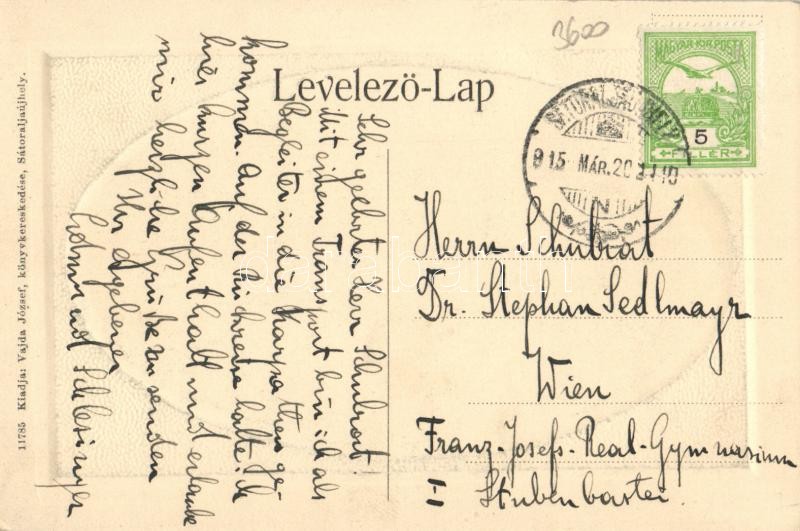 3600
Levelező-Lap
MAGYAR KIR. POSTA
5
FILLÉR
SÁTORALJAÚJHELY
915 MÁR. 20
Sehr geehrter Herr Schulrat!
Mit einem Transport bin ich als
Begleiter in die Karpathen ge-
kommen. Auf der Rückreise halte ich
hier kurzen Aufenthalt und erlaube
mir herzliche Grüße zu senden
Ihr ergebener
Edmund Schlesinger
Herrn Schulrat
Dr. Stephan Sedlmayr
Wien
Franz-Josefs-Real-Gymnasium
I-I
Stubenbastei.
11785 Kiadja: Vajda József, könyvkereskedése, Sátoraljaújhely.
darabanth